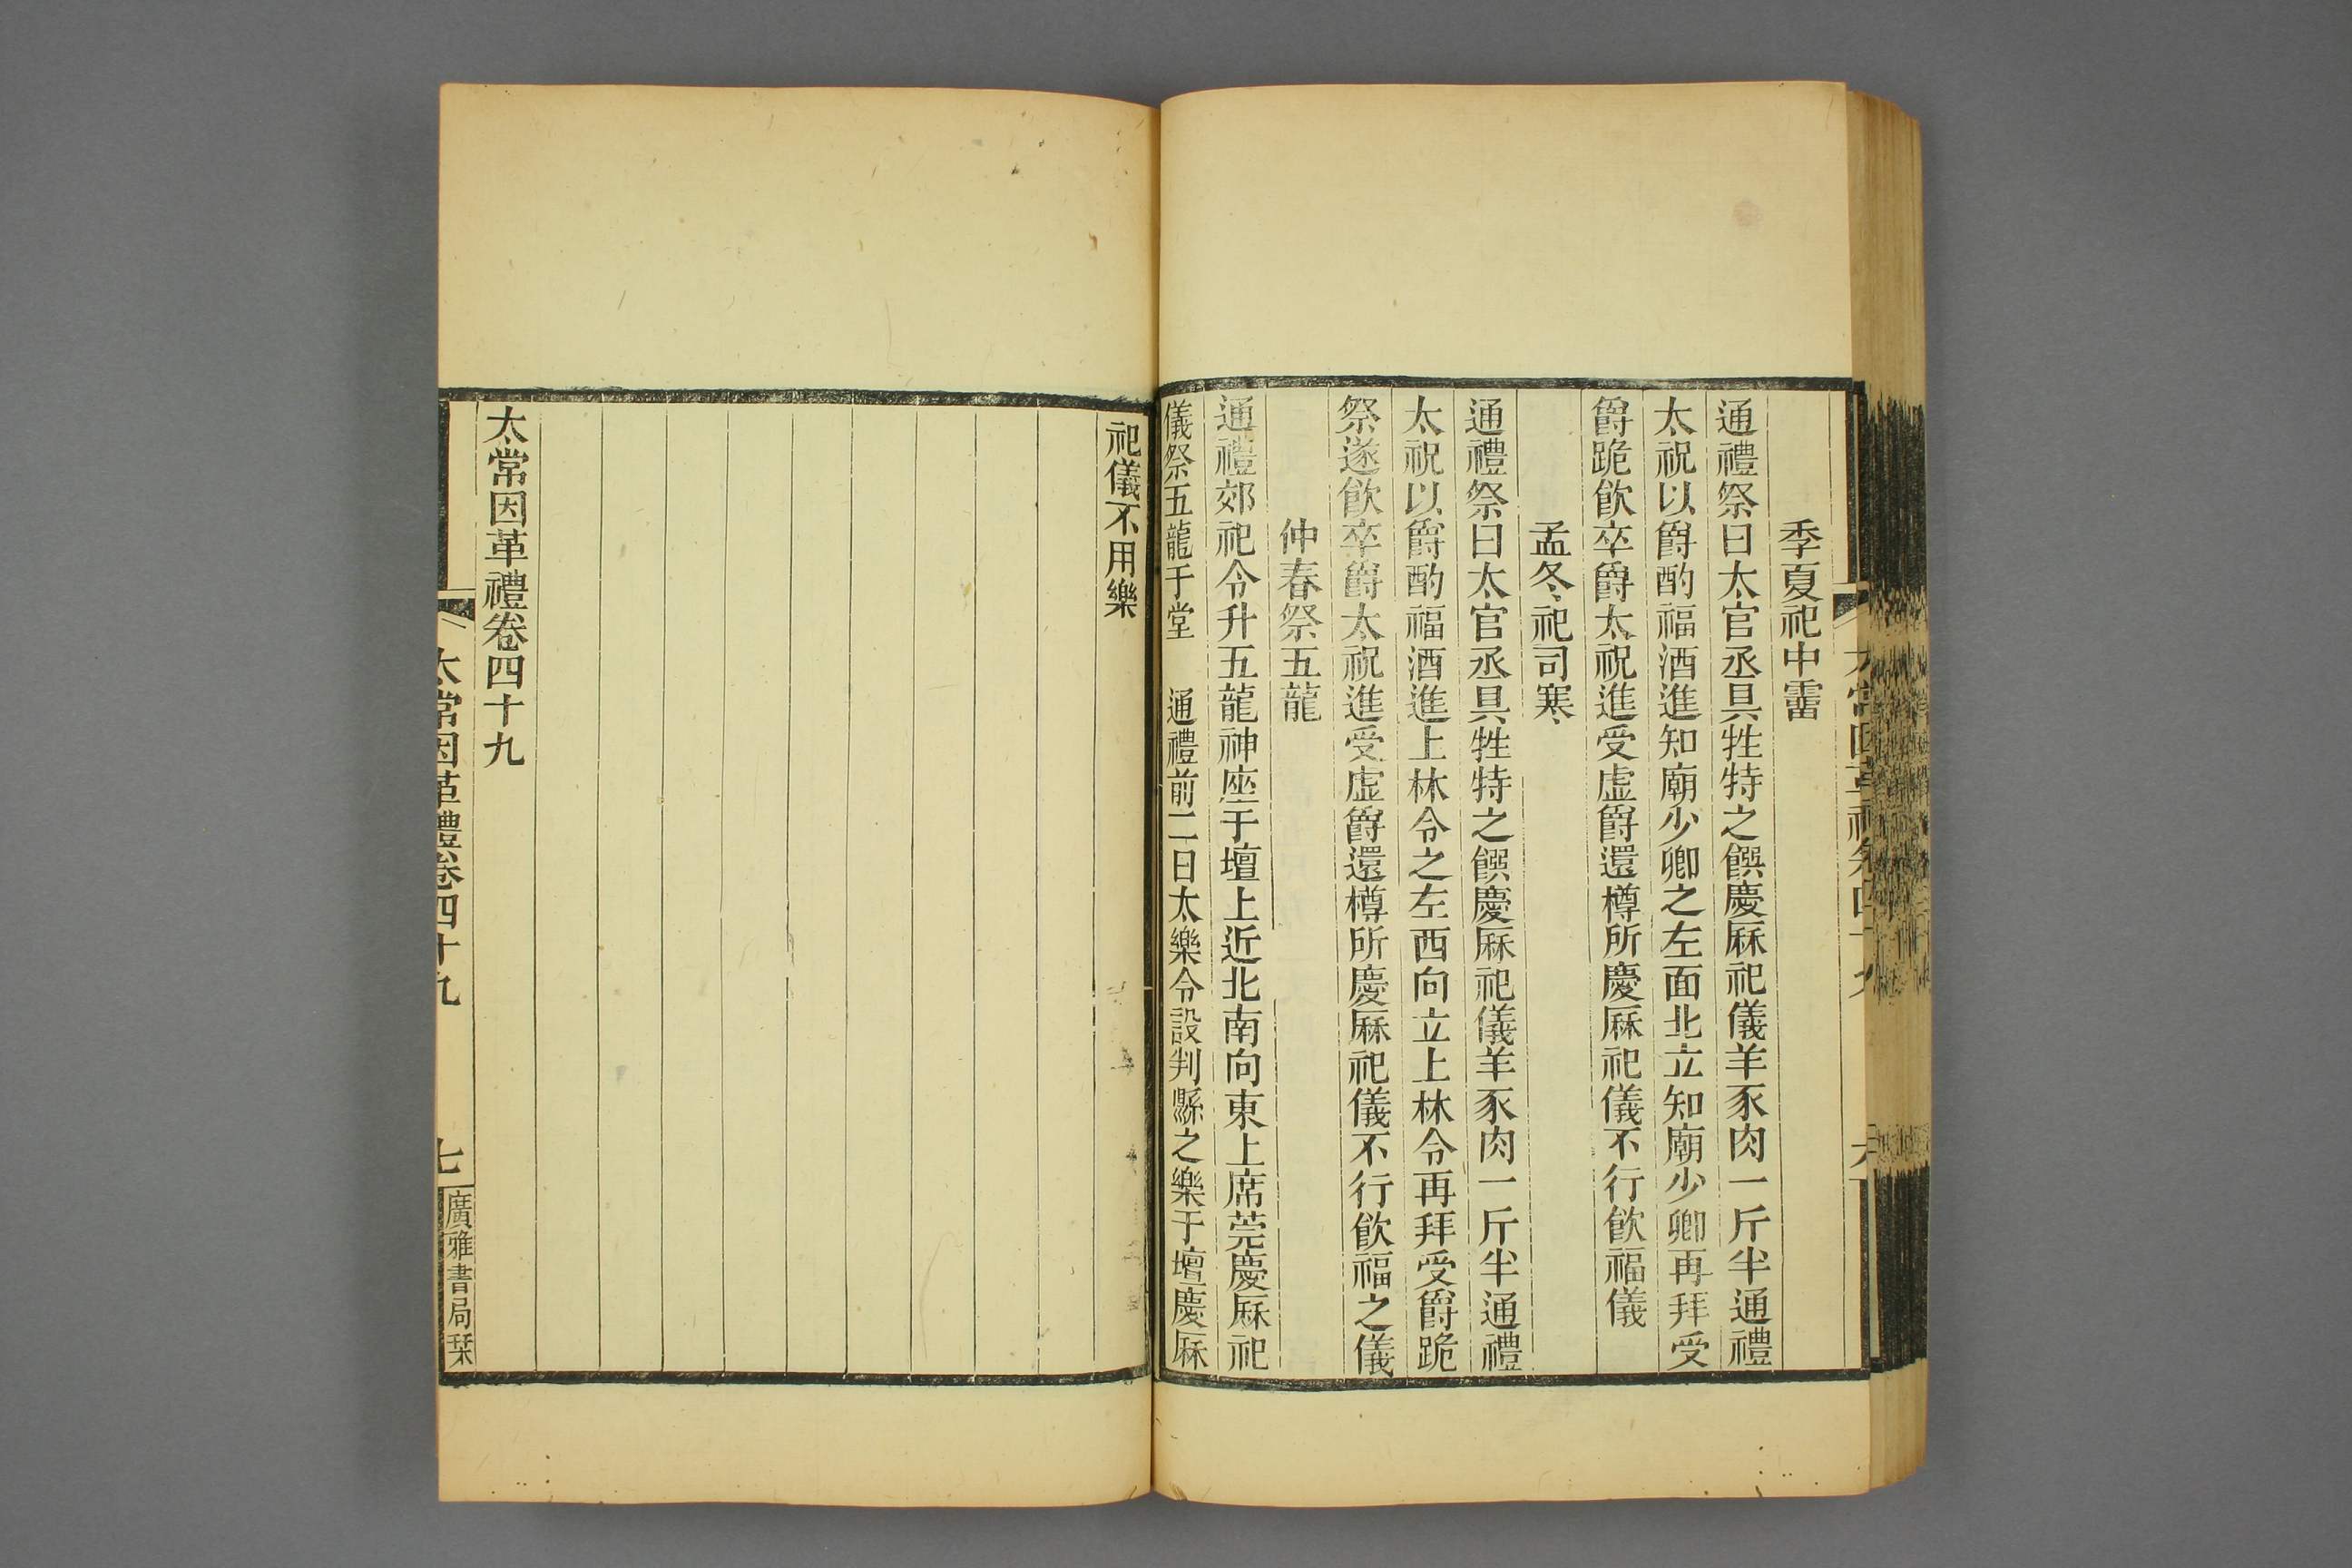 季夏祀中霤
通禮祭日太官丞具牲特之饌慶厤祀儀羊豕肉一斤半通禮
太祝以爵酌福酒進知廟少卿之左面北立知廟少卿再拜受
爵跪飮卒爵太祝進受虛爵還樽所慶厤祀儀不行飮福儀
孟冬祀司寒
通禮祭日太官丞具牲特之饌慶厤祀儀羊豕肉一斤半通禮
太祝以爵酌福酒進上林令之左西向立上林令再拜受爵跪
祭遂飮卒爵太祝進受虛爵還樽所慶厤祀儀不行飮福之儀
仲春祭五龍
通禮郊祀令升五龍神座于壇上近北南向東上席莞慶厤祀
儀祭五龍于堂 通禮前二日太樂令設判縣之樂于壇慶厤
祀儀不用樂
太常因革禮卷四十九
太常因革禮卷四十九
七
廣雅書局栞